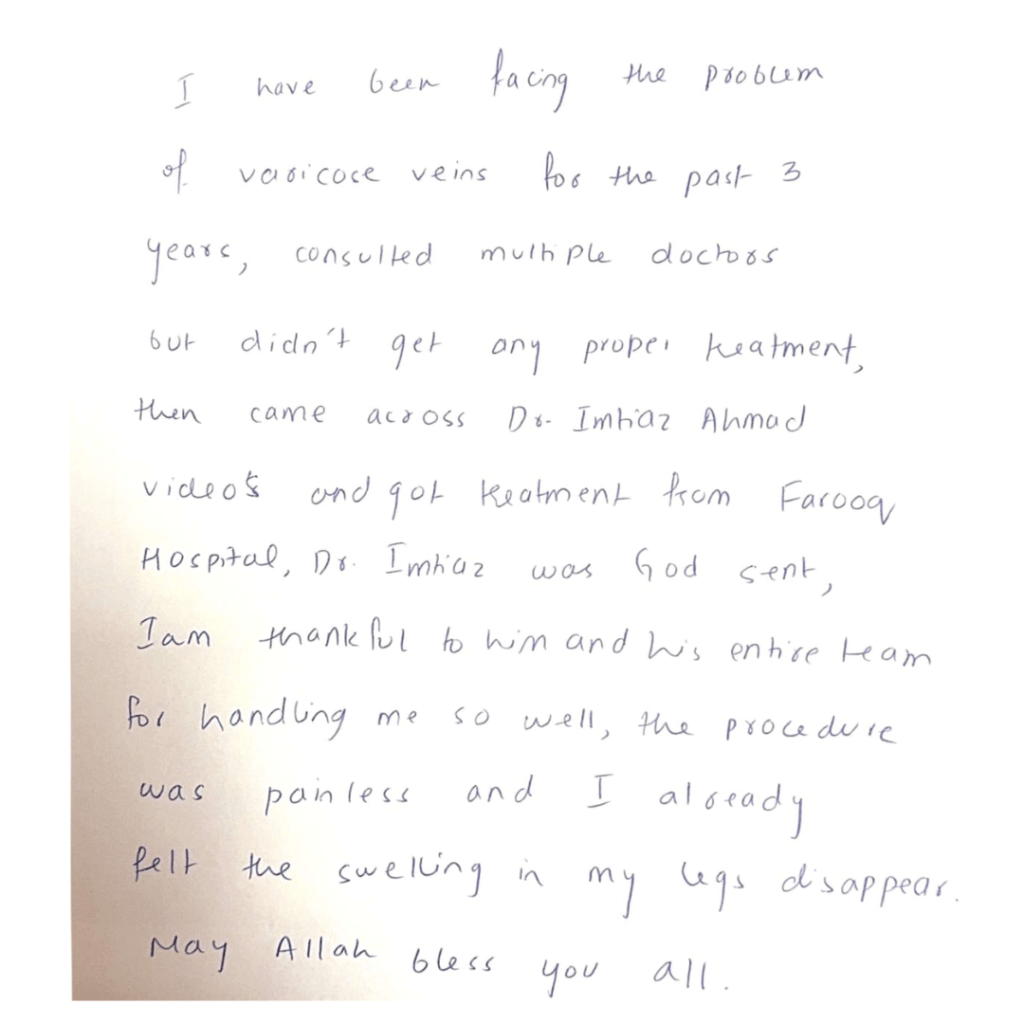 I have been facing the problem
of varicose veins for the past 3
years, consulted multiple doctors
but didn't get any proper treatment,
then came across Dr. Imtiaz Ahmad
video's and got treatment from Farooq
Hospital, Dr. Imtiaz was God sent,
I am thankful to him and his entire team
for handling me so well, the procedure
was painless and I already
felt the swelling in my legs disappear.
May Allah bless you all.